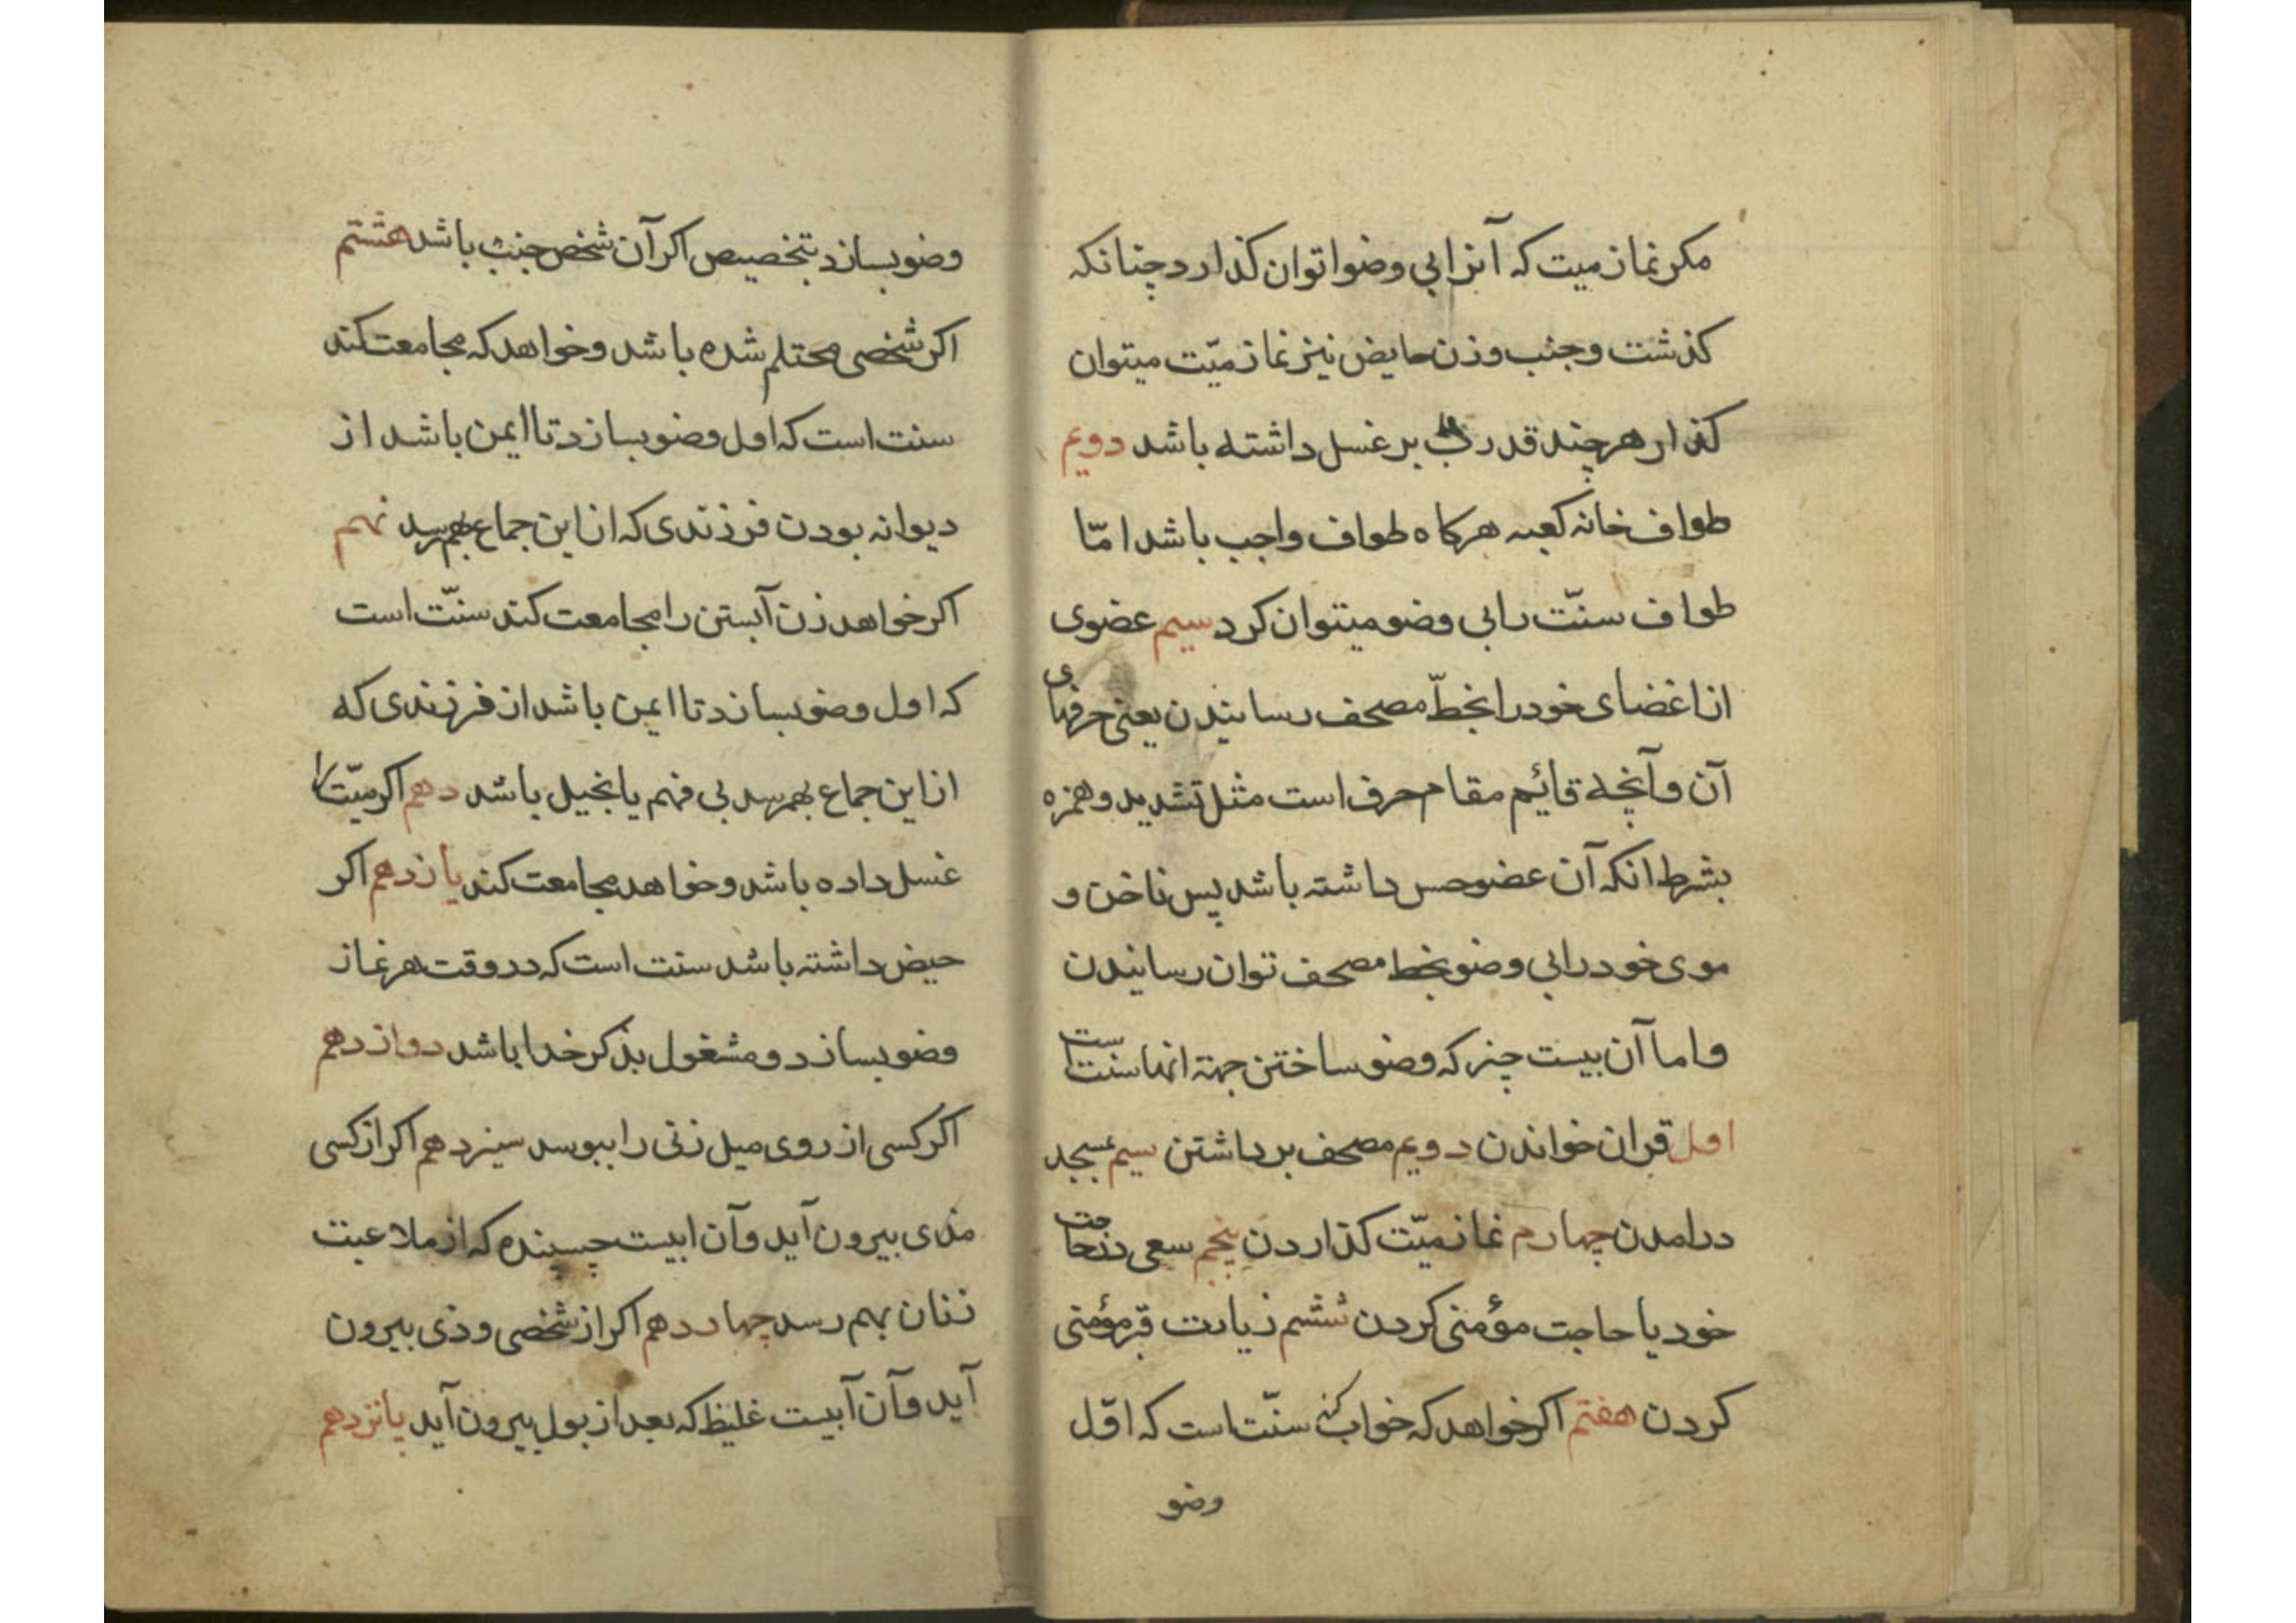 مکر نماز میت که آنرا بی وضوا توان کذارد چنانکه
کذشت و جنب و زن حایض نیز نماز میّت میتوان
کذار هرچند قدرت بر غسل داشته باشد دویم
طواف خانه کعبه هرکاه طواف واجب باشد امّا
طواف سنّت را بی وضو میتوان کرد سیم عضوی
از اغضای خود را بخطّ مصحف رسانیدن یعنی حرفهای
آن و آنچه قائیم مقام حرف است مثل تشدید و همزه
بشرط انکه آن عضو حس داشته باشد پس ناخن و
موی خود را بی وضو بخط مصحف توان رسانیدن
و اما آن بیست چیز که وضو ساختن جهة انها سنت است
اول قران خواندن دویم مصحف برداشتن سیم بمسجد
درامدن چهارم نماز میّت کذاردن پنجم سعی در حاجت
خود یا حاجت مؤمنی کردن ششم زیارت قبر مؤمنی
کردن هفتم اکر خواهد که خواب کند سنّت است که اوّل
وضو
وضو بسازد بتخصیص اکر آن شخص جنب باشد هشتم
اکر شخصی محتلم شده باشد و خواهد که مجامعت کند
سنت است که اول وضو بسازد تا ایمن باشد از
دیوانه بودن فرزندی که از این جماع بهم رسد نهم
اکر خواهد زن آبستن را مجامعت کند سنّت است
که اول وضو بسازد تا ایمن باشد از فرزندی که
از این جماع بهم رسد بی فهم یا بخیل باشد دهم اکر میّت را
غسل داده باشد و خواهد مجامعت کند یازدهم اکر
حیض داشته باشد سنت است که در وقت هر نماز
وضو بسازد و مشغول بذکر خدا باشد دوازدهم
اکر کسی از روی میل زنی را ببوسد سیزدهم اکر از کسی
مذی بیرون آید و آن ابیست چسپنده که از ملاعبت
زنان بهم رسد چهاردهم اکر از شخصی وذی بیرون
آید و آن آبیست غلیظ که بعد از بول بیرون آید پانزدهم